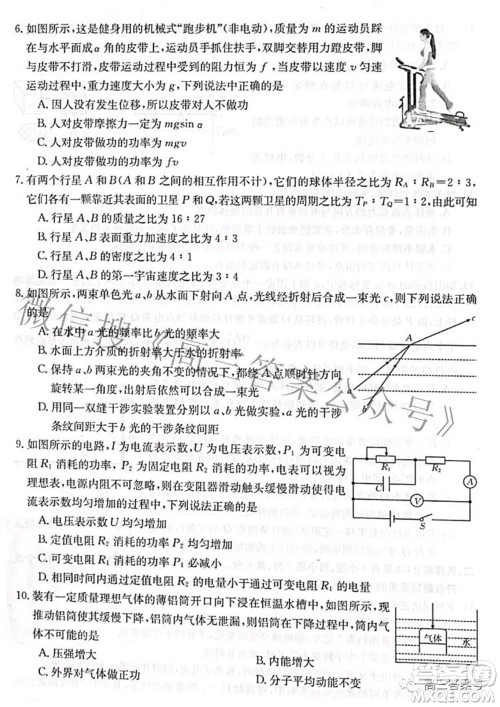 6. 如图所示，这是健身用的机械式“跑步机”(非电动)，质量为 m 的运动员踩
在与水平面成 α 角的皮带上，运动员手抓住扶手，双脚交替用力蹬皮带，脚
与皮带不打滑，皮带运动过程中受到的阻力恒为 f，当皮带以速度 v 匀速
运动过程中，重力加速度大小为 g，下列说法中正确的是
A. 因人没有发生位移，故人对皮带不做功
B. 人对皮带摩擦力一定为 mgsin α
C. 人对皮带做功的功率为 mgv
D. 人对皮带做功的功率为 fv
7. 有两个行星 A 和 B(A 和 B 之间的相互作用不计)，它们的球体半径之比为 R_A : R_B=2 : 3，
它们各有一颗靠近其表面的卫星 P 和 Q，若这两颗卫星的周期之比为 T_P : T_Q=1 : 2，由此可知
A. 行星 A、B 的质量之比为 16 : 27
B. 行星 A、B 表面重力加速度之比为 4 : 1
C. 行星 A、B 的密度之比为 4 : 1
D. 行星 A、B 的第一宇宙速度之比为 3 : 4
8. 如图所示，两束单色光 a、b 从水面下射向 A 点，光线经折射后合成一束光 c，则下列说法正确
的是
A. 在水中 a 光的频率比 b 光的频率大
B. 水面上方介质的折射率大于水的折射率
C. 保持 a、b 两束光的夹角不变的情况下，都绕 A 点顺时针方向
旋转某一角度，a、b 光仍可能合成一束光
D. 用同一双缝干涉实验装置分别以 a、b 光做实验，a 光的干涉
条纹间距大于 b 光的干涉条纹间距
a
b
A
c
9. 如图所示的电路，I 为电流表示数，U 为电压表示数，P₁ 为可变电
阻 R₁ 消耗的功率，P₂ 为固定电阻 R₂ 消耗的功率，电源内阻不能
忽略，电表内阻可不计，则在变阻器滑动触头缓慢滑动使得电流
表示数均匀增加的过程中，下列说法正确的是
A. 电压表示数 U 均匀增加
B. 定值电阻 R₂ 消耗的功率 P₂ 均匀增加
C. 可变电阻 R₁ 消耗的功率 P₁ 必减小
D. 相同时间内通过定值电阻 R₂ 的电量小于通过可变电阻 R₁ 的电量
R₁
R₂
A
V
S
10. 装有一定质量理想气体的薄铝筒开口向下浸在恒温水槽中，如图所示，现
推动铝筒使其缓慢下降，铝筒内气体无泄漏，则向下推动过程中，筒内气
体不可能的是
A. 压强增大
B. 内能增大
C. 对外界气体做正功
D. 分子平均动能不变
气体
水
微信搜《高三答案公众号》
高三答案号